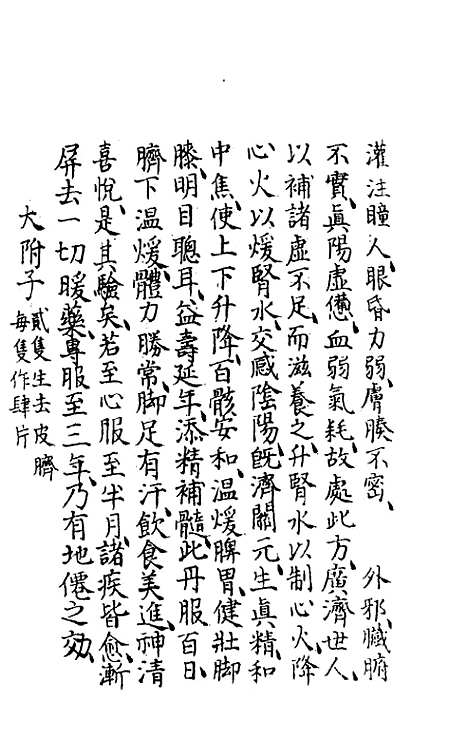 灌注瞳人、眼昏力弱、膚腠不密、　外邪、臟腑
不實、眞陽虛憊、血弱氣耗、故處此方、廣濟世人、
以補諸虛不足、而滋養之、升腎水以制心火、降
心火以煖腎水、交感陰陽、旣濟關元、生眞精、和
中焦、使上下升降、百骸安和、溫煖脾胃、健壯脚
膝、明目聰耳、益壽延年、添精補髓、此丹服百日、
臍下溫煖、體力勝常、脚足有汗、飲食美進、神清
喜悅、是其驗矣、若至心服至半月、諸疾皆愈、漸
屏去一切暖藥、專服至三年、乃有地僊之効、
大附子 貳隻生去皮臍
每隻作肆片